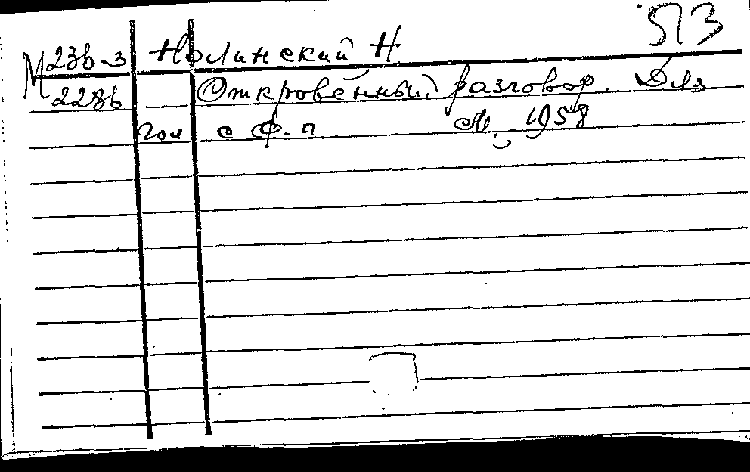 513
М 23b-3 Нолинский Н
2286 Откровенный разговор. Для
гол с ф-п М, 1958